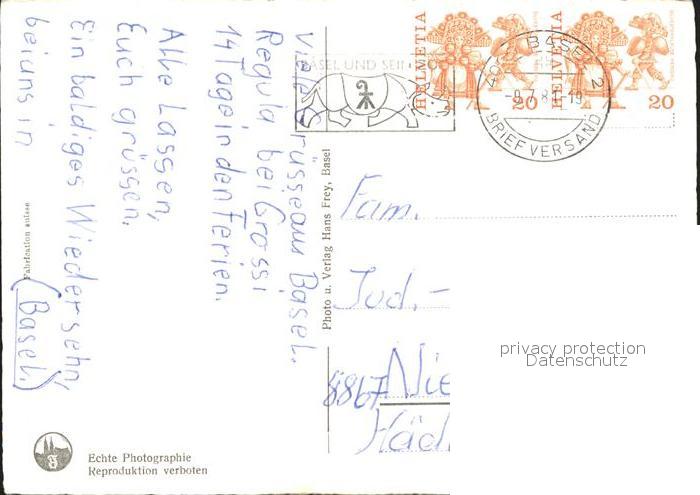 Viele Grüsse aus Basel.
Regula bei Grossi
14 Tage in den Ferien.
Alle Lassen,
Euch grüssen.
Ein baldiges Wiedersehn,
bei uns in
(Basel.)
Fabrication suisse
Echte Photographie
Reproduktion verboten
Photo u. Verlag Hans Frey, Basel
BASEL UND SEIN ZO
HELVETIA
20
HELVETIA
20
BASEL 2
-9.7.8 -19
BRIEFVERSAND
Fam.
Jud.-
8867 Nie
Häd
privacy protection
Datenschutz